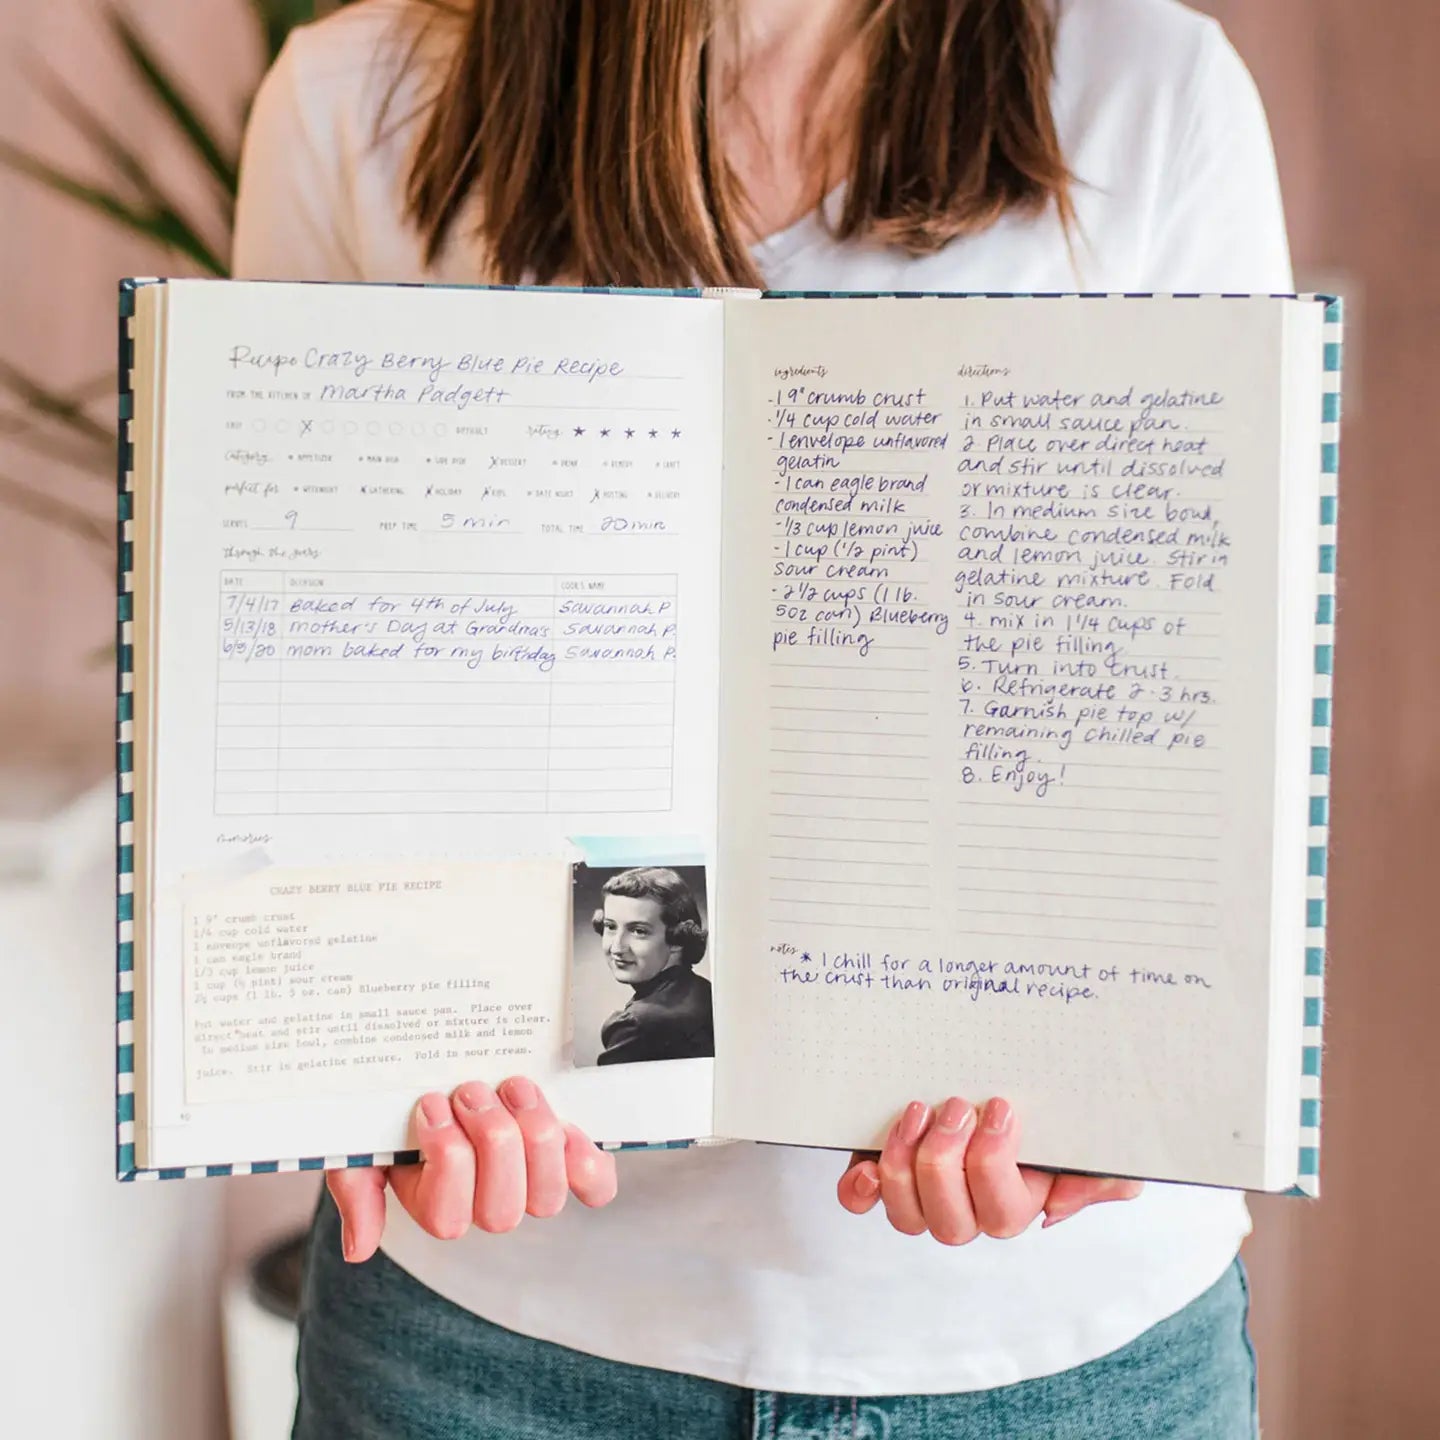 Recipe Crazy Berry Blue Pie Recipe
FROM THE KITCHEN OF Martha Padgett
EASY X DIFFICULT rating ★ ★ ★ ★ ★
category APPETIZER MAIN DISH SIDE DISH X DESSERT DRINK REMEDY CRAFT
perfect for WEEKNIGHT X GATHERING X HOLIDAY X KIDS DATE NIGHT X HOSTING DELIVERY
SERVES 9 PREP TIME 5 min TOTAL TIME 20 min
through the years
DATE OCCASION COOK'S NAME
7/4/17 Baked for 4th of July Savannah P
5/13/18 Mother's Day at Grandma's Savannah P.
mom baked for my birthday Savannah P.
memories
CRAZY BERRY BLUE PIE RECIPE
1 9" crumb crust
1/4 cup cold water
1 unflavored gelatine
1 can eagle brand
1/3 cup lemon juice
1 cup (½ pint) sour cream
2½ cups (1 lb. 5 oz. can) Blueberry pie filling
Put water and gelatine in small sauce pan. Place over
direct heat and stir until dissolved or mixture is clear.
In medium size bowl, combine condensed milk and lemon
juice. Stir in gelatine mixture. Fold in sour cream.
40
ingredients
-1 9" crumb crust
-1/4 cup cold water
-1 envelope unflavored
gelatin
-1 can eagle brand
condensed milk
-1/3 cup lemon juice
-1 cup (1/2 pint)
sour cream
-2 1/2 cups (1 lb.
5oz can) Blueberry
pie filling
directions
1. Put water and gelatine
in small sauce pan.
2. Place over direct heat
and stir until dissolved
or mixture is clear.
3. In medium size bowl,
combine condensed milk
and lemon juice. Stir in
gelatine mixture. Fold
in sour cream.
4. mix in 1 1/4 cups of
the pie filling
5. Turn into crust.
6. Refrigerate 2-3 hrs.
7. Garnish pie top w/
remaining chilled pie
filling.
8. Enjoy!
notes
* I chill for a longer amount of time on
the crust than original recipe.